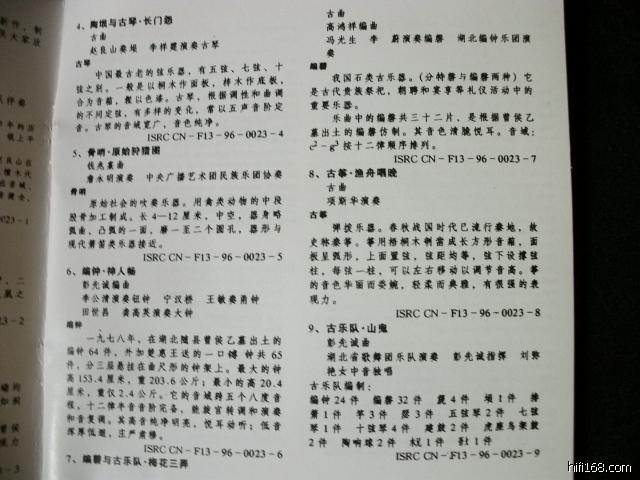 4、陶埙与古琴·长门怨
古曲
赵良山奏埙 李祥霆演奏古琴
古琴
中国最古老的弦乐器，有五弦、七弦、十
弦之别。一般是以桐木作面板，梓木作底板，
合为音箱，髹以色漆。古琴，根据调性和曲调
的不同定弦，有多样的变化，常以五声音阶定
音。古琴的音域宽广，音色纯净。
ISRC CN－F13－96－0023－4
5、骨哨·原始狩猎图
钱兆熹曲
詹永明演奏 中央广播艺术团民族乐团协奏
骨哨
原始社会的吹奏乐器。用禽类动物的中段
肢骨加工制成。长4—12厘米，中空，器身略
弧曲，凸弧的一面，磨一至二个圆孔，器形与
现代箫笛类乐器接近。
ISRC CN－F13－96－0023－5
6、编钟·神人畅
彭先诚编曲
李公清演奏钮钟 宁汉桥 王敏奏甬钟
田世昌 龚高英演奏大钟
编钟
一九七八年，在湖北随县曾侯乙墓出土的
编钟64件，外加楚惠王送的一口镈钟共65
件，分三层悬挂在曲尺形的钟架上。最大的钟
高153.4厘米，重203.6公斤；最小的高20.4
厘米，重仅2.4公斤。它的音域跨五个八度音
程，十二律半音音阶完备，能旋宫转调和演奏
和音复调。其高音纯净明亮，悦耳动听；低音
浑厚低迴，庄严肃穆。
ISRC CN－F13－96－0023－6
7、编磬与古乐队·梅花三弄
古曲
高鸿祥编曲
冯光生 李 蔚演奏编磬 湖北编钟乐团演
奏
编磬
我国石类古乐器。（分特磬与编磬两种）它
是古代贵族祭祀，朝聘和宴享等礼仪活动中的
重要乐器。
乐曲中的编磬共三十二片，是根据曾侯乙
墓出土的编磬仿制。其音色清脆悦耳。音域：
c²－g³按十二律顺序排列。
ISRC CN－F13－96－0023－7
8、古筝·渔舟唱晚
古曲
项斯华演奏
古筝
弹拨乐器。春秋战国时代已流行秦地，故
史称秦筝。筝用梧桐木刳凿成长方形音箱，面
板呈弧形，上面置弦，弦距均等，弦下设撑弦
柱，每弦一柱，可以左右移动以调节音高。筝
的音色华丽而委婉，轻柔而典雅，有很强的表
现力。
ISRC CN－F13－96－0023－8
9、古乐队·山鬼
彭先诚曲
湖北省歌舞团乐队演奏 彭先诚指挥 刘
艳女中音独唱
古乐队编制：
编钟24件 编磬32件 篪4件 埙1件 排
箫1件 竽3件 瑟3件 五弦琴2件 七弦
琴1件 十弦琴4件 建鼓2件 虎座鸟架鼓
2件 陶响球2件 1件 1件
ISRC CN－F13－96－0023－9
0023－1
3－2
－3
hifi168.com